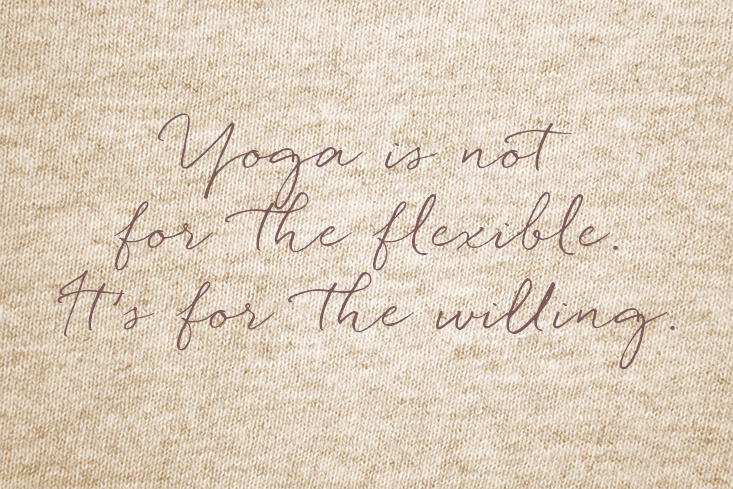 Yoga is not
for the flexible.
It's for the willing.